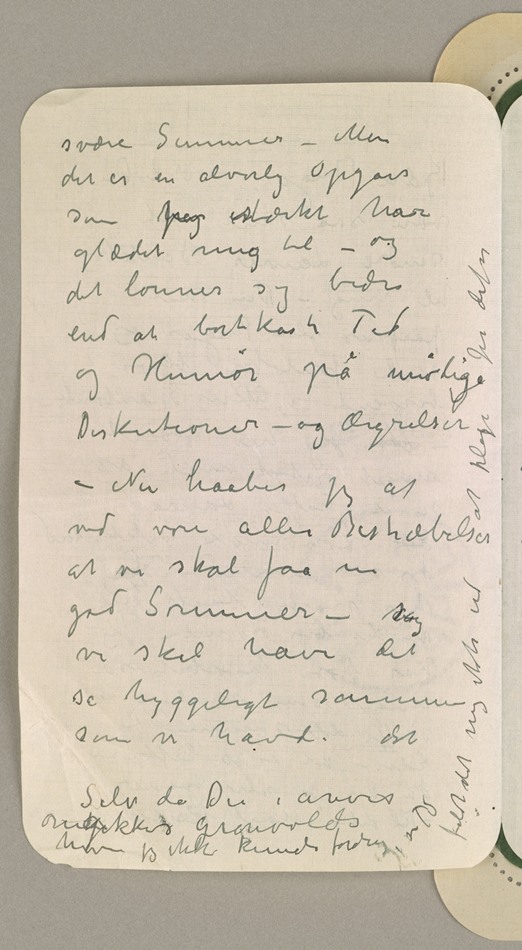 svære Sommer – Men
det er en alvorlig Opgave
som jeg stærkt har
glædet mig til – og
det lønner sig bedre
end at bortkaste Tid
og Humør på unødige
Diskutioner – og Ærgrelser
– Nu haaber jeg at
ved vore alles Bestræbelser
at vi skal faa en
god Sommer – og
vi skal have det
så hyggeligt sammen
som vi havde det
Selv da Du
Grønvolds
jeg ikke kunde
det mig ikke ved at plage Jer